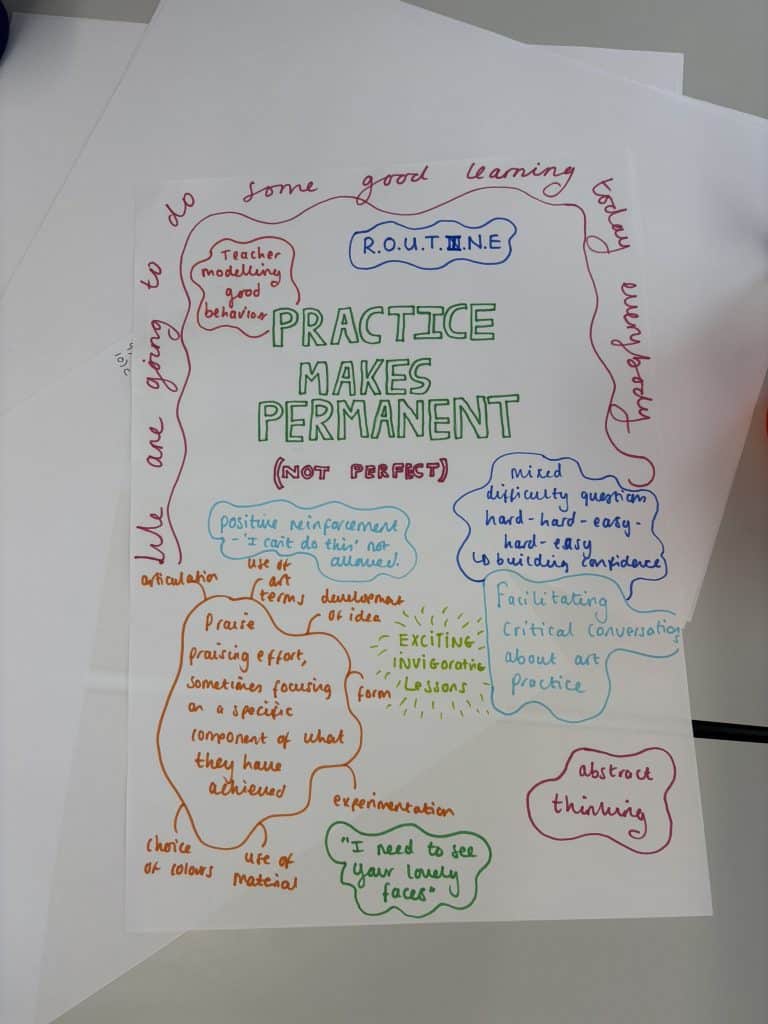 We are going to do some good learning today everybody
R.O.U.T.I.N.E
Teacher
modelling
good
behavior
PRACTICE
MAKES
PERMANENT
(NOT PERFECT)
mixed
difficulty questions
hard-hard-easy-
hard-easy
↳ building confidence
positive reinforcement
- 'I can't do this' not
allowed.
Facilitating
Critical conversations
about art
practice
EXCITING
INVIGORATING
Lessons
articulation
use of
art
terms
development
of idea
form
Praise
praising effort,
sometimes focusing
on a specific
component of what
they have
achieved
experimentation
choice
of colours
use of
material
abstract
thinking
"I need to see
your lovely
faces"